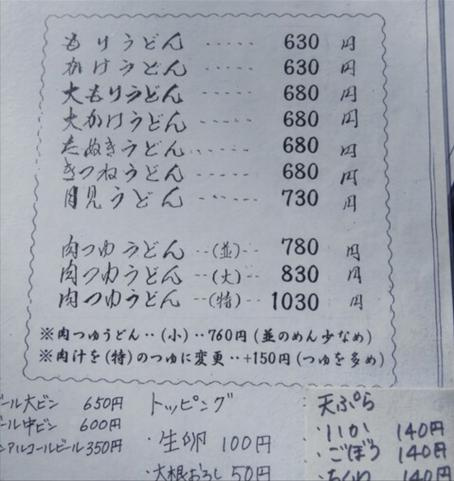 もりうどん ‥‥‥ 630 円
かけうどん ‥‥‥ 630 円
大もりうどん ‥‥‥ 680 円
大かけうどん ‥‥‥ 680 円
たぬきうどん ‥‥‥ 680 円
きつねうどん ‥‥‥ 680 円
月見うどん ‥‥‥ 730 円
肉つゆうどん ‥(並)‥ 780 円
肉つゆうどん ‥(大)‥ 830 円
肉つゆうどん ‥(特)‥ 1030 円
※肉つゆうどん‥(小)‥760円(並のめん少なめ)
※肉汁を(特)のつゆに変更‥+150円(つゆを多め)
ール大ビン 650円
ール中ビン 600円
ンアルコールビール350円
トッピング
・生卵 100円
・大根おろし 50円
天ぷら
・いか 140円
・ごぼう 140円
・ちくわ 140円